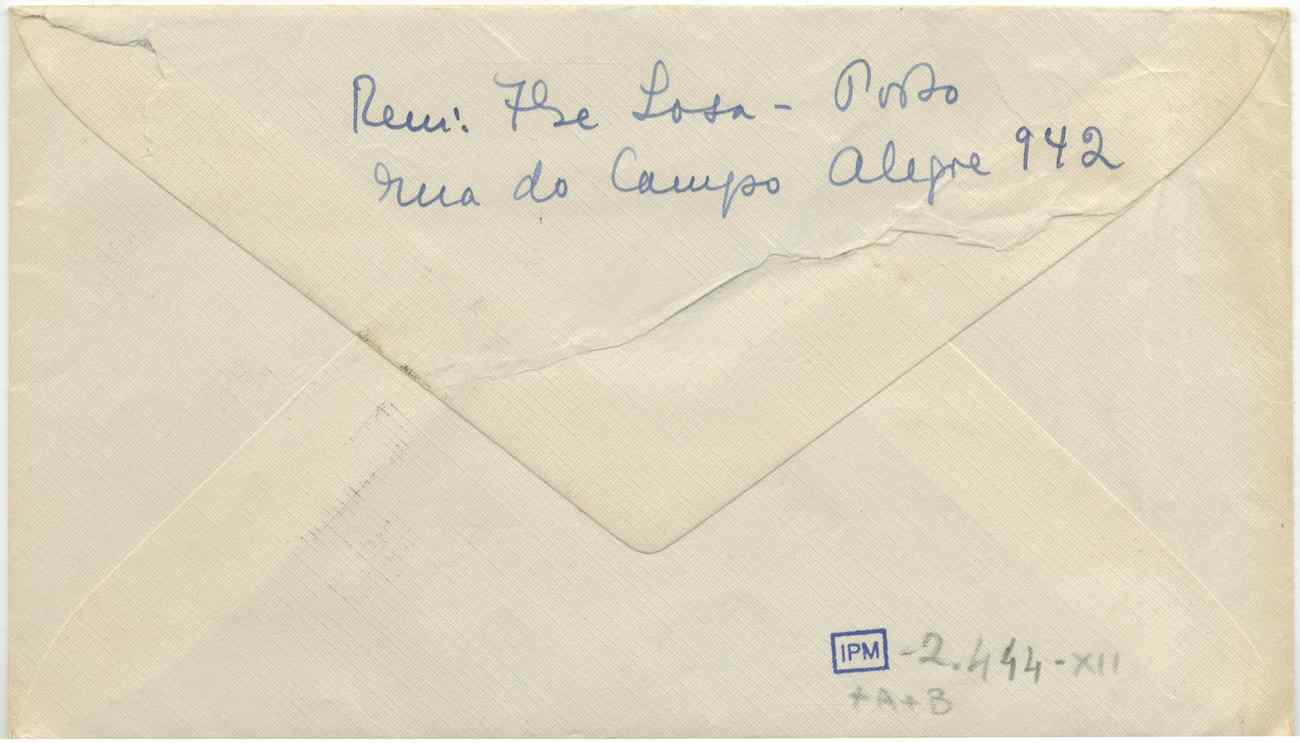 Rem: Ilse Losa - Porto
rua do Campo Alegre 942
IPM -2.444-XII
+A+B